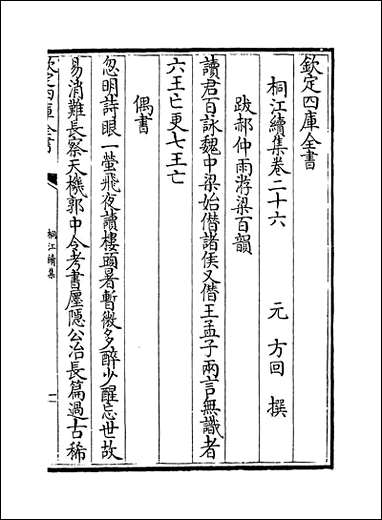 欽定四庫全書
桐江續集卷二十六
元 方回 撰
跋郝仲雨游梁百韻
讀君百詠魏中梁始僭諸侯又僭王孟子兩言無識者
六王亡更七王亡
偶書
忽明詩眼一螢飛夜讀樓頭暑暫微多醉少醒忘世故
易消難長察天機郭中令考書屢隱公冶長篇過古稀
欽定四庫全書
桐江續集